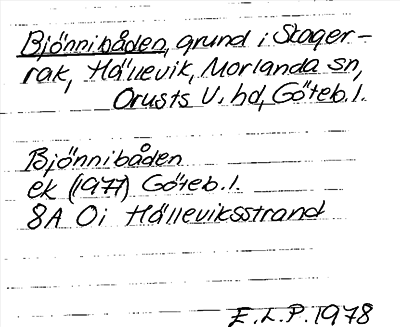 Bjönnibåden, grund i Skager-
rak, Hällevik, Morlanda sn,
Orusts V. hd, Göteb. l.
Bjönnibåden
ek (1977) Göteb. l.
8A 0i Hälleviksstrand
E.L.P. 1978